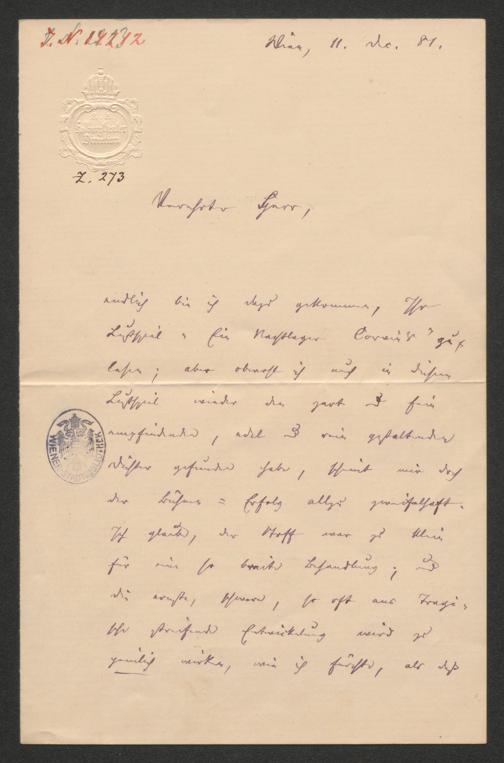 J. N. 19232
Wien, 11. Dec. 81.
Z. 273
Verehrter Herr,
endlich bin ich dazu gekommen, Ihr
Lustspiel „Ein Nachtlager Corvin's" zu
lesen; aber obwohl ich auch in diesem
Lustspiel wieder den zart & fein
empfindenden, edel & rein gestaltenden
Dichter gefunden habe, scheint mir doch
der Bühnen=Erfolg allzu zweifelhaft.
Ich glaube, der Stoff war zu klein
für eine so breite Behandlung; &
die ernste, schwere, so oft ans Tragi=
sche streifende Entwickelung wird zu
peinlich wirken, wie ich fürchte, als daß